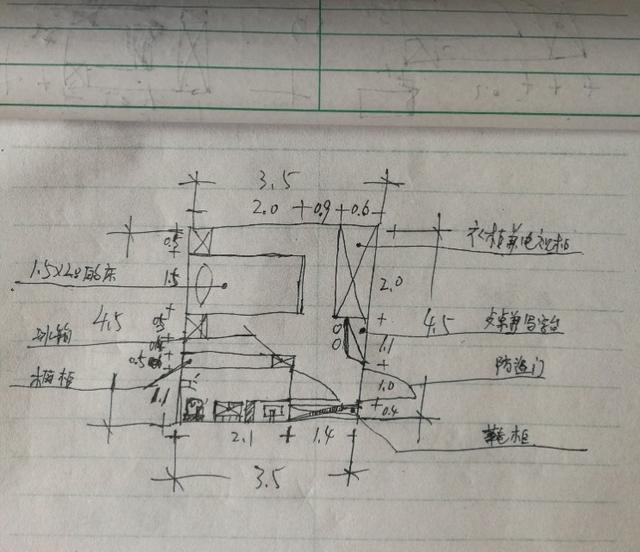 3.5
2.0 0.9 0.6
0.5
衣柜兼电视柜
1.5X2.0的床
1.5
2.0
4.5
0.5
4.5
冰箱
1.1
0.5
防盗门
橱柜
1.1
1.0
0.4
2.1
1.4
鞋柜
3.5